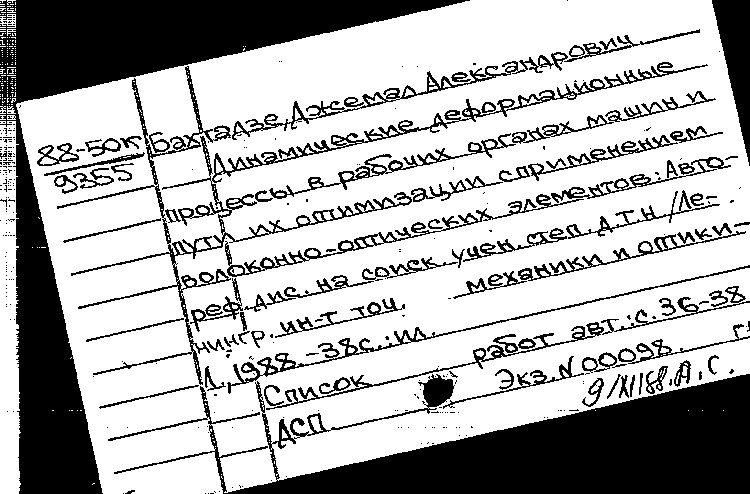 88-50к Бахтадзе, Джемал Александрович.
9355 Динамические деформационные
процессы в рабочих органах машин и
пути их оптимизации с применением
волоконно-оптических элементов: Авто-
реф. дис. на соиск. учен. степ. д.т.н /Ле-
нингр. ин-т точ. механики и оптики.-
Л., 1988.-38с.: ил.
Список работ авт.: с. 36-38
ДСП Экз. N 00098.
9/XI188. А.С.